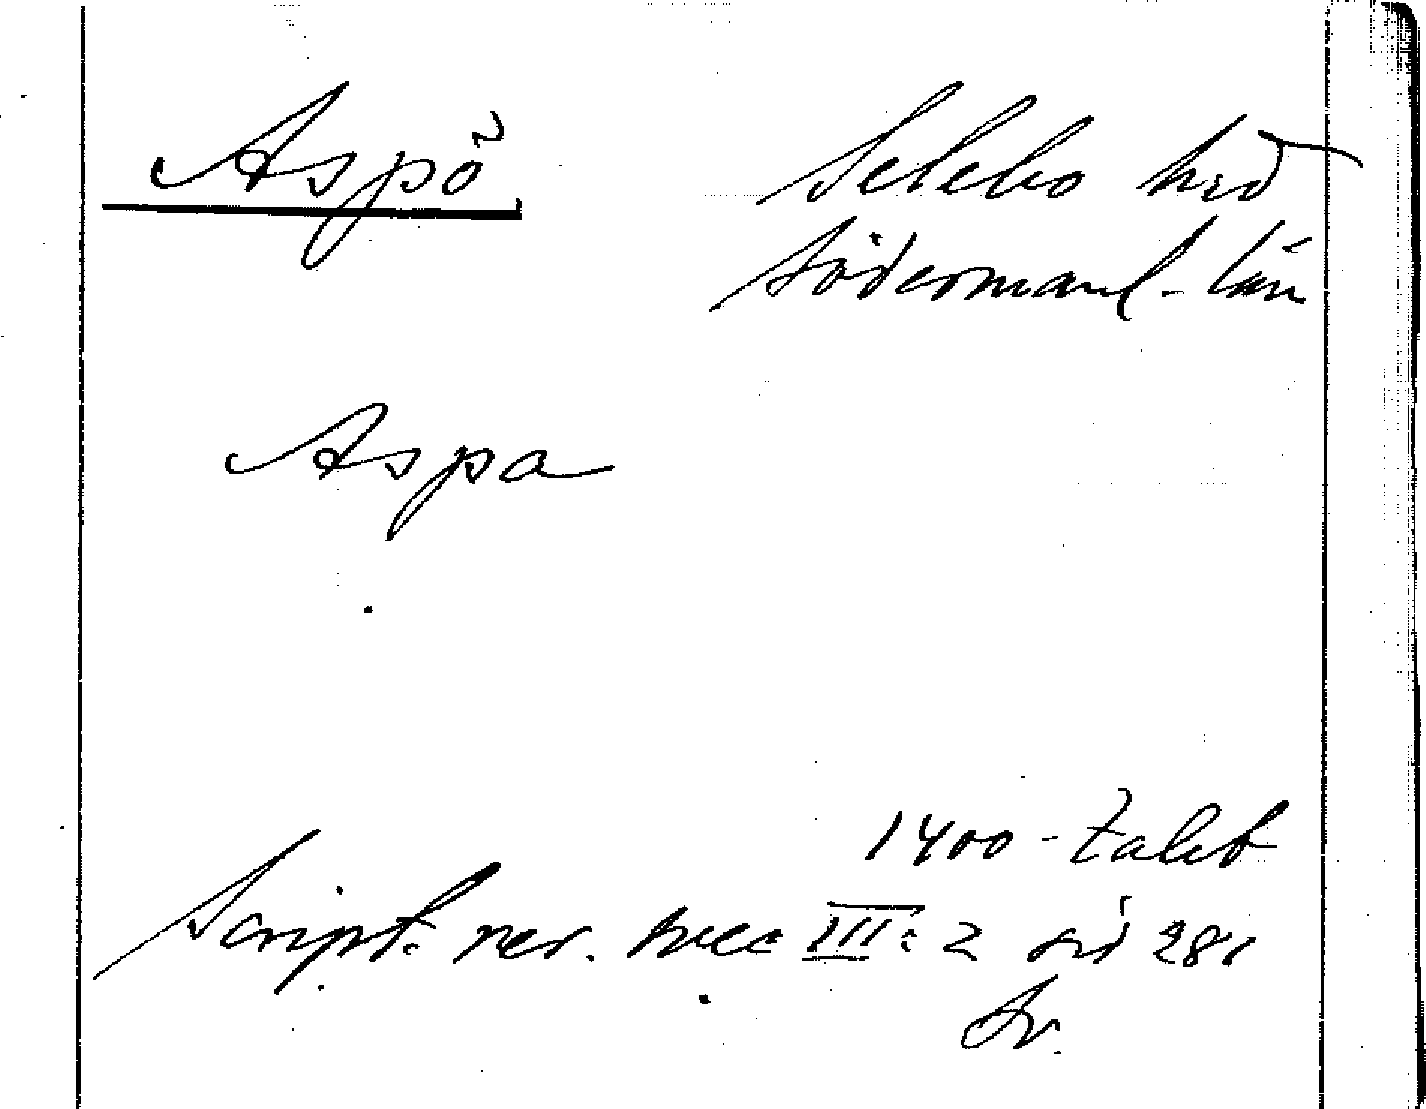 Aspö
Selebo hrd
Södermanl. län
Aspa
1400-talet
Script. rer. svec. III: 2 sid 281
Sv.